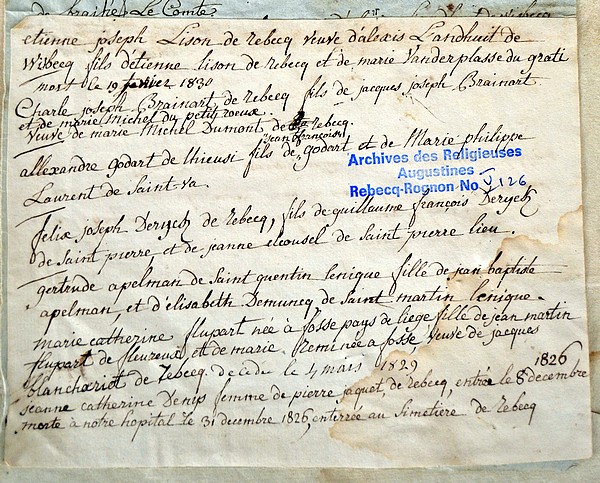 de braine Le Comte
etienne joseph Lison de rebecq veuve d'alexis Landhuit de
Wibecq fils d'étienne lison de rebecq et de marie Vanderplasse du grati
mort le 19 fevrier 1830
Charle joseph Brainart, de Rebecq fils de jacques joseph Brainart
et de marie michel du petit roeux.
veuve de marie Michel Dumont de Rebecq.
allexandre godart de thieusi fils de jean françois godart et de Marie philippe
Laurent de Saint-va.
Archives des Religieuses
Augustines
Rebecq-Rognon No V 126
felix joseph Deryck de rebecq, fils de guillaume françois Deryck
de Saint pierre, et de jeanne clousel de Saint pierre lieu.
gertrude apelman de Saint quentin lenique fille de jean baptiste
apelman, et d'elisabeth Demuncq de Saint martin lenique.
marie catherine flupart née à fosse pays de liege fille de jean martin
flupart de fleuroux, et de marie. Remi née a fosse, veuve de jacques
blanchariot de rebecq. decedu le 4 mars 1829
1826
jeanne catherine Denis femme de pierre jaquet, de rebecq, entrée le 8 decembre
morte à notre hopital le 31 decembre 1826, entirrée au simetière de rebecq